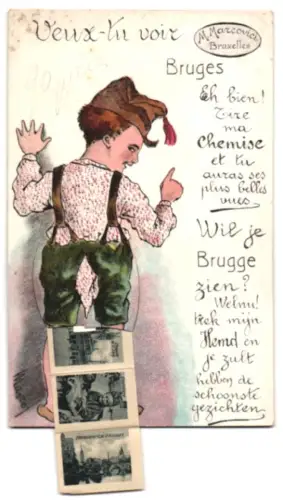 Veux-tu voir
M. Marcovici
Bruxelles
Bruges
Eh bien!
Tire
ma
Chemise
et tu
auras ses
plus belles
vues.
Wil je
Brugge
zien?
Welnu!
trek mijn
Hemd en
je zult
hebben de
schoonste
gezichten.